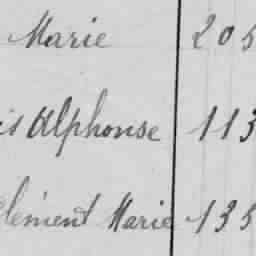 Marie 205
is Alphonse 113
Clément Marie 135